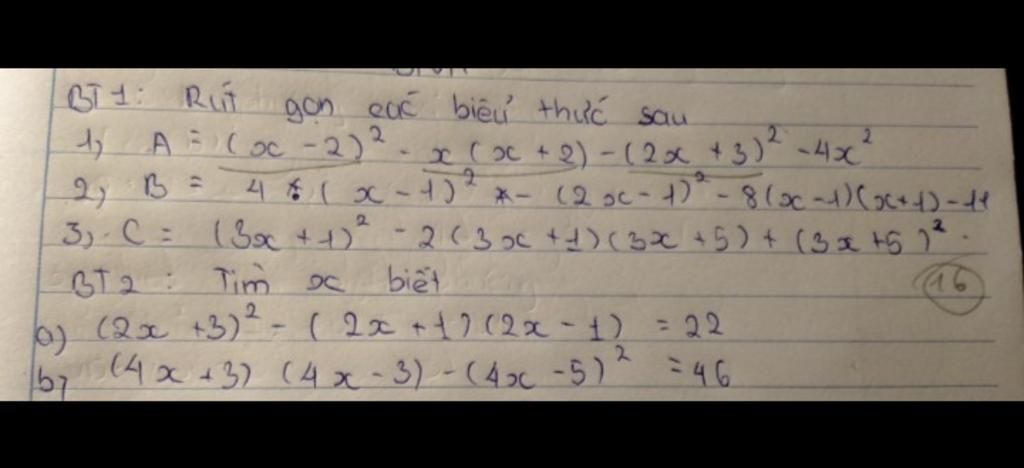 BT1: Rút gọn các biểu thức sau
1, A = (x - 2)² - x(x + 2) - (2x + 3)² - 4x²
2, B = 4 (x - 1)² - (2x - 1)² - 8(x - 1)(x + 1) - 11
3, C = (3x + 1)² - 2(3x + 1)(3x + 5) + (3x + 5)².
BT2: Tìm x biết
16
a) (2x + 3)² - (2x + 1)(2x - 1) = 22
b, (4x + 3)(4x - 3) - (4x - 5)² = 46